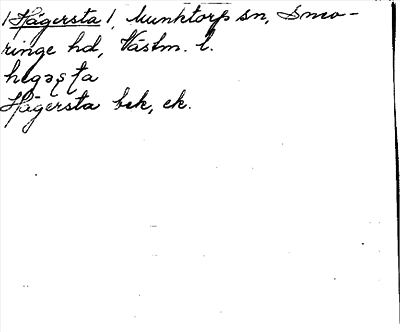 /Hägersta/, Munktorp sn, Snev-
ringe hd, Västm. l.
Hägersta bek, ek.